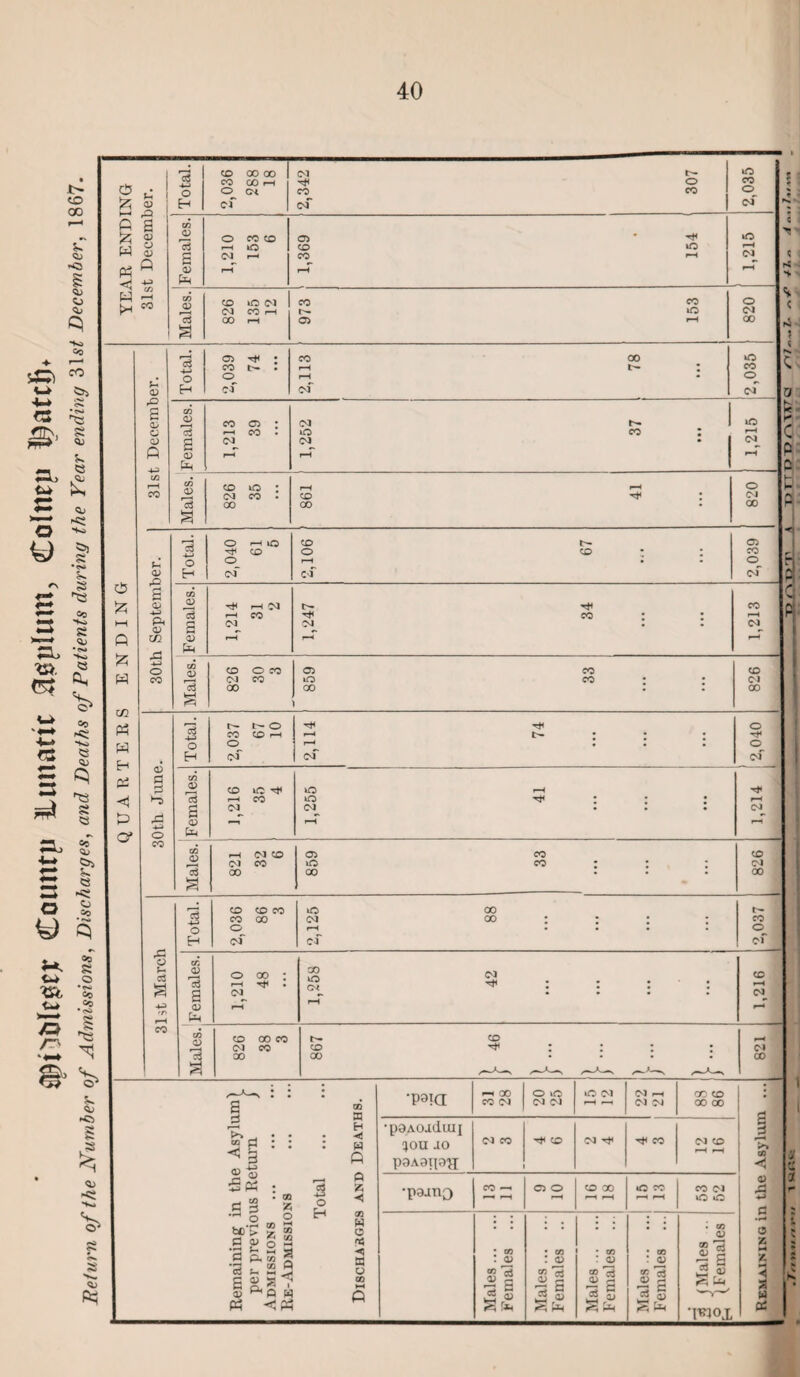 40
Middlesex County Lunatic Asylum, Colney Hatch.
Return of the Number of Admissions, Discharges, and Deaths of Patients during the Year ending 31st December, 1867.
QUARTERS ENDING | YEAR ENDING 31st December.
31st March | 30th June. | 30th September. | 31st December.
Males. Females. Total. | Males. Females. Total. | Males. Females. Total. | Males. Females. Total. | Males. Females. Total.
Remaining in the Asylum per previous Return 826 1,210 2,036 | 821 1,216 2,037 | 826 1,214 2,040 | 826 1,213 2,039 | 826 1,210 2,036
Admissions ... ... 38 48 86 | 32 35 67 | 30 31 61 | 35 39 74 | 135 153 288
Re-Admissions ... ... 3 ... 3 | 6 4 10 | 3 2 5 | ... ... ... | 12 6 18
Total ... ... 867 1,258 2,125 | 859 1,255 2,114 | 859 1,247 2,106 | 861 1,252 2,113 | 973 1,369 2,342
Discharges and Deaths.
Cured. | Relieved or not Improved. | Died.
Males ... ... 13 2 31
Females ... 11 3 28
46 42 88
Males ... ... 9 4 20
Females ... 10 6 25
... ... ... 33 41 74
Males ... ... 16 2 15
Females ... 18 4 12
... ... ... 33 34 67
Males ... ... 15 4 22
Females ... 13 3 21
... ... ... 41 37 78
Total. Males .. 53 12 88
Females 52 16 86
... ... ... 153 154 307
Remaining in the Asylum ... 821 1,216 2,037 | 826 1,214 2,040 | 826 1,213 2,039 | 820 1,215 2,035 | 820 1,215 2,035